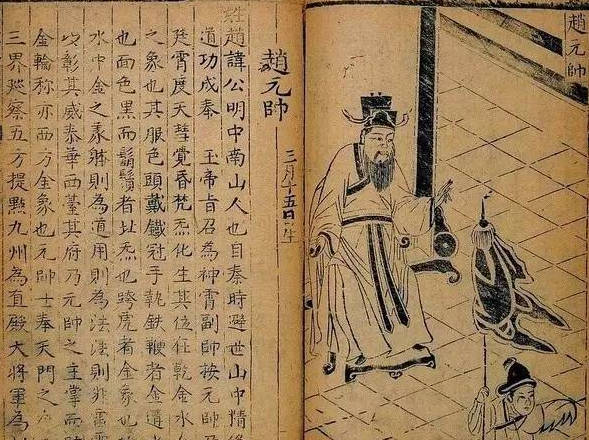 趙元帥
趙元帥
三月十五日生
姓趙諱公明中南山人也自秦時避世山中精修
道功成奉 玉帝旨召為神霄副帥按元帥乃
廷霄度天彗覺昏梵炁化生其位在乾金水
之象也其服色頭戴鐵冠手執鉄鞭者金遘水
也面色黑而鬍鬚者北炁也跨虎者金象也
水中金之象躰則為道用則為法法則非雷
以彰其威泰華西臺其府乃元帥之主掌而
金輪称亦西方金象也元帥上奉天門之
三界巡察五方提點九州為直殿大將軍為